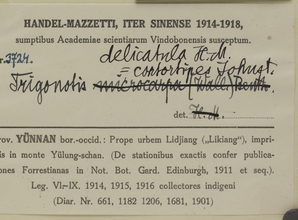 HANDEL-MAZZETTI, ITER SINENSE 1914-1918,
sumptibus Academiae scientiarum Vindobonensis susceptum.
Nr. 3724. delicatula H.M.
= contortipes Johnst.
Trigonotis microcarpa (Wall.) Benth.
det. H.M.
Prov. YÜNNAN bor.-occid.: Prope urbem Lidjiang („Likiang"), impri-
is in monte Yülung-schan. (De stationibus exactis confer publica-
iones Forrestianas in Not. Bot. Gard. Edinburgh, 1911 et seq.).
Leg. VI.-IX. 1914, 1915, 1916 collectores indigeni
(Diar. Nr. 661, 1182 1206, 1681, 1901)